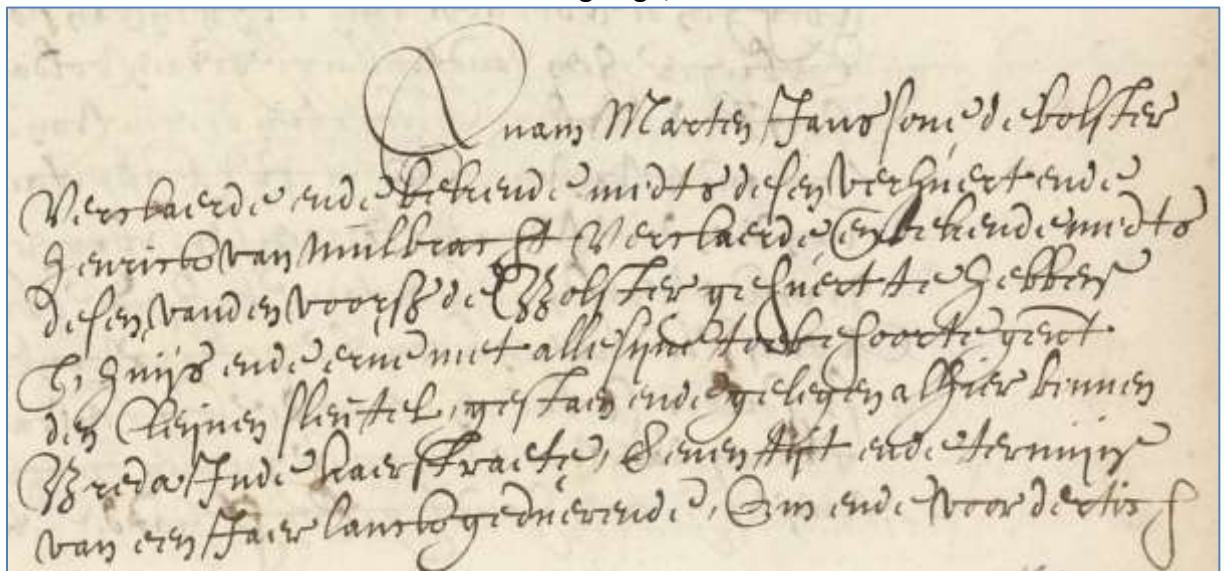 Quam Marten Janssone de bolster
Verclaerde ende bekende midts desen verhuert ende
Henrick van Mulbracht Verclaerde en bekende midts
desen vanden voorsz de Bolster gehuert te hebben
t, huijs ende erve met alle sijne toebehoorte gent
den cleijnen sleutel, gestaen ende gelegen alhier binnen
Breda Inde kaerstraete, Eenen tijt ende termijn
van een Jaer lanck geduerende, Om ende voor dertich